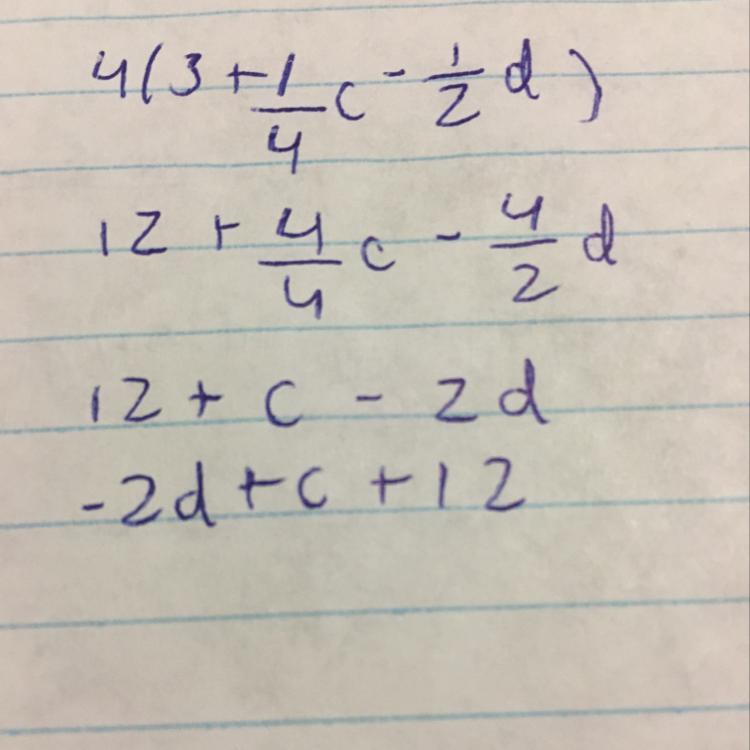 4(3 + 1/4 c - 1/2 d)
12 + 4/4 c - 4/2 d
12 + c - 2d
-2d + c + 12